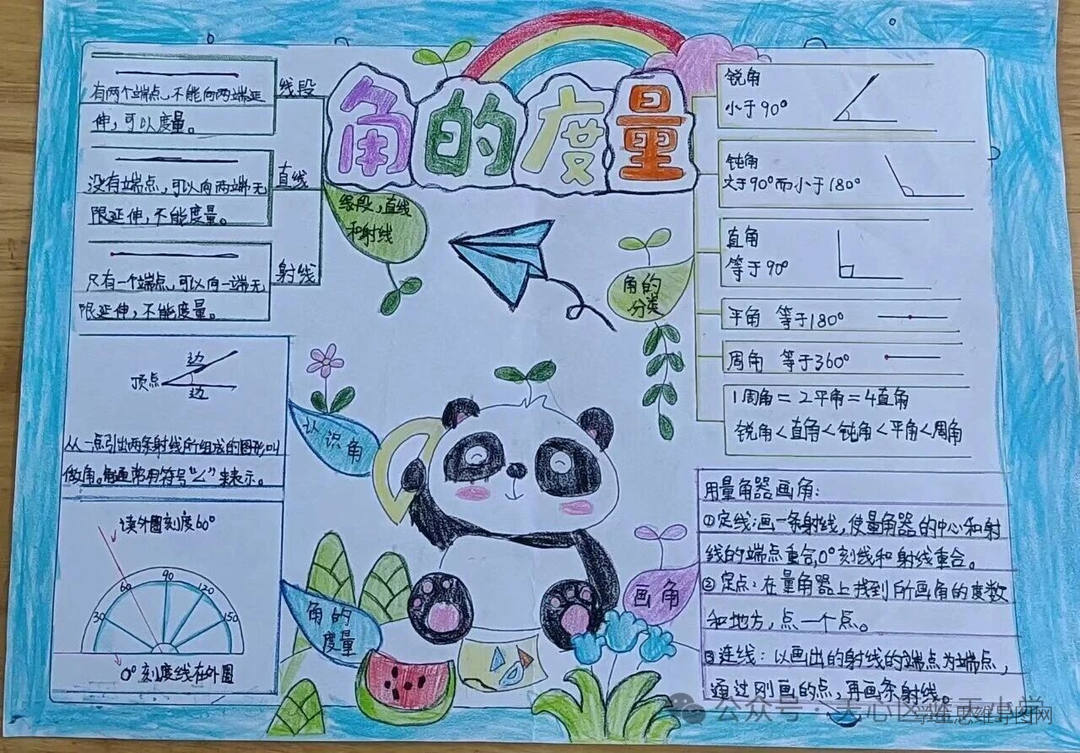 角的度量
有两个端点、不能向两端延
伸，可以度量。
线段
没有端点，可以向两端无
限延伸，不能度量。
直线
只有一个端点，可以向一端无
限延伸，不能度量。
射线
线段，直线
和射线
边
顶点
边
从一点引出两条射线所组成的图形叫
做角。角通常用符号“∠”来表示。
认识角
读外圈刻度60°
30
60
90
120
150
0°刻度线在外圈
角的
度量
角的
分类
锐角
小于90°
钝角
大于90°而小于180°
直角
等于90°
平角 等于180°
周角 等于360°
1周角=2平角=4直角
锐角<直角<钝角<平角<周角
画角
用量角器画角：
①定线：画一条射线，使量角器的中心和射
线的端点重合，0°刻线和射线重合。
②定点：在量角器上找到所画角的度数
和地方，点一个点。
③连线：以画出的射线的端点为端点，
通过刚画的点，再画条射线。
公众号·天心区
思维导图网